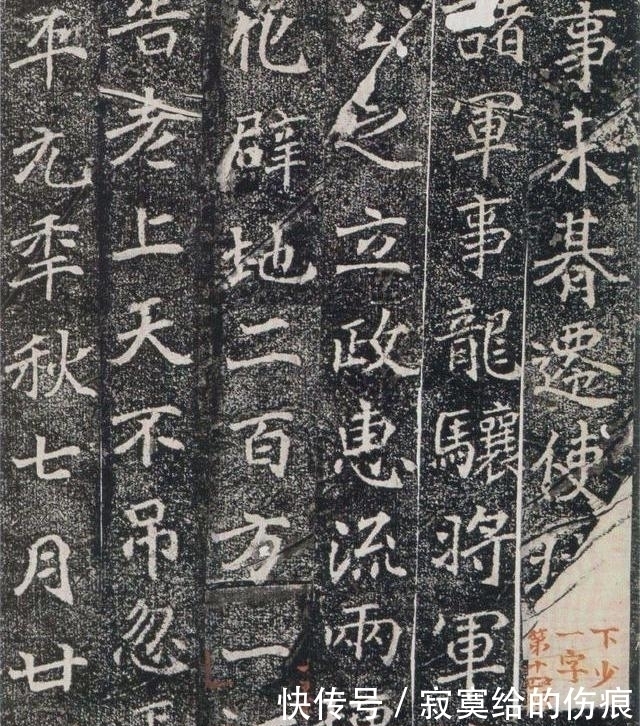 事未朞遷使
諸軍事龍驤將軍
公之立政惠流兩
化辟地二百方一
告老上天不吊忽
平元年秋七月廿
下少
一字
第十
快传号 / 寂寞给的伤痕